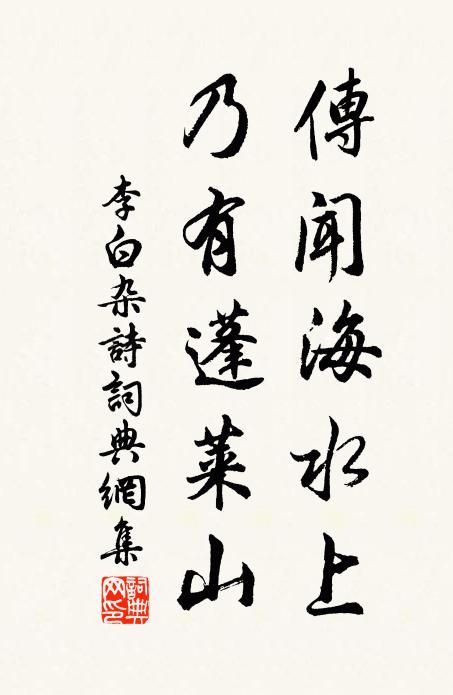 傳聞海水上
乃有蓬萊山
李白杂詩詞典網集
詞典
网印